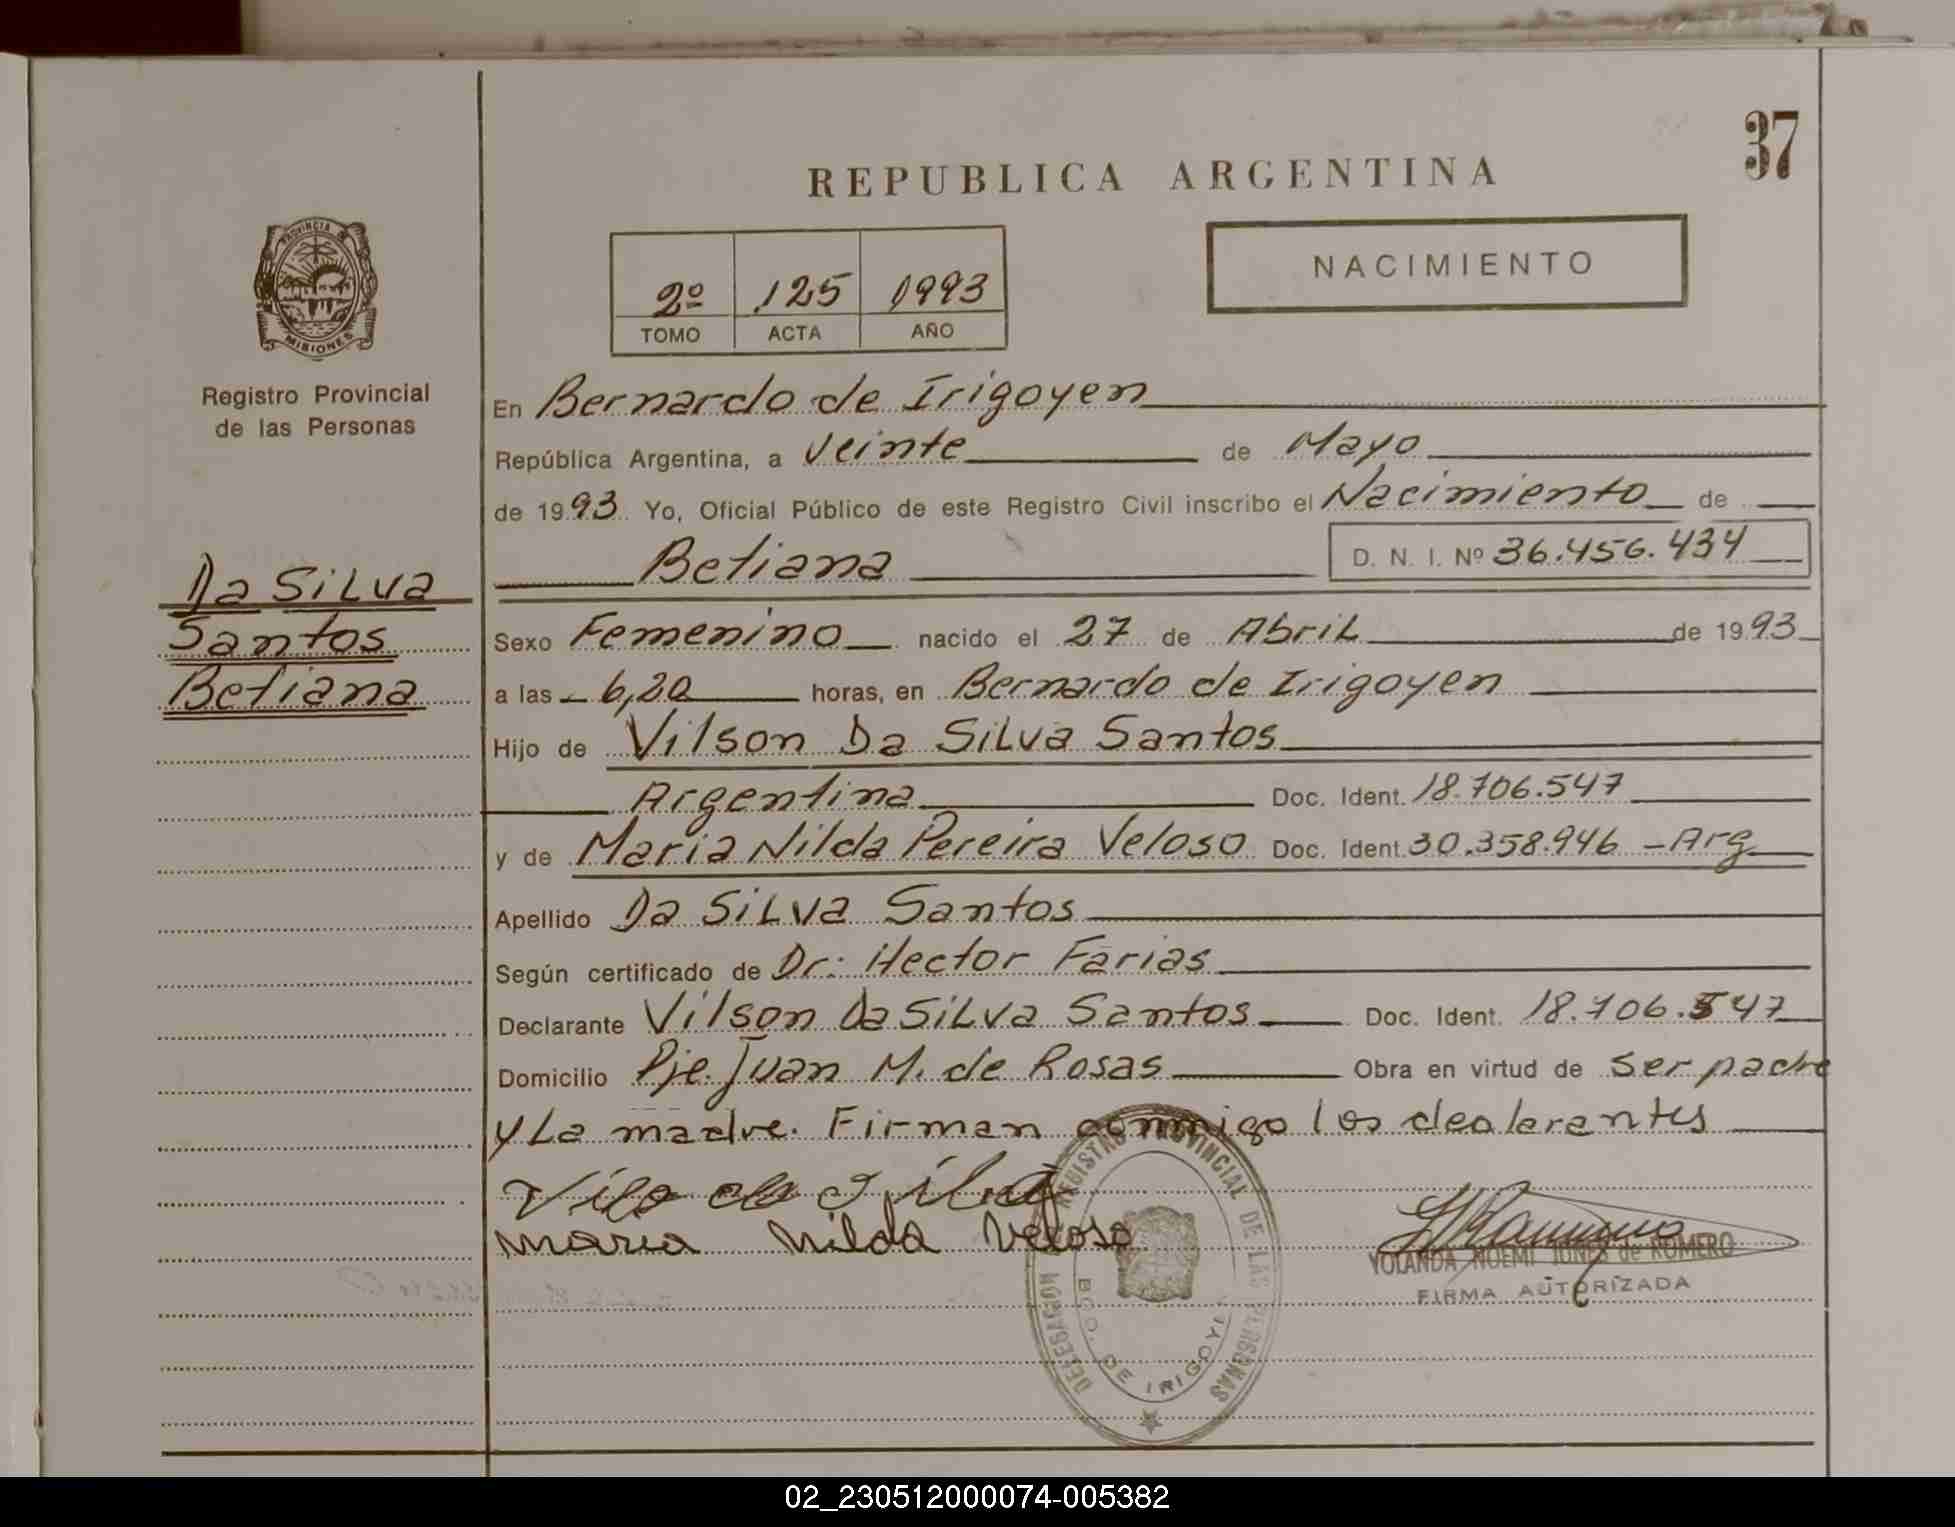 37
REPUBLICA ARGENTINA
PROVINCIA DE
MISIONES
Registro Provincial
de las Personas
NACIMIENTO
2º 125 1993
TOMO ACTA AÑO
En Bernardo de Irigoyen
República Argentina, a Veinte de Mayo
de 1993 Yo, Oficial Público de este Registro Civil inscribo el Nacimiento de
Betiana D. N. I. Nº 36.456.434
Da Silva
Santos
Betiana
Sexo Femenino nacido el 27 de Abril de 1993
a las 6,20 horas, en Bernardo de Irigoyen
Hijo de Vilson Da Silva Santos
Argentina Doc. Ident. 18.706.547
y de Maria Nilda Pereira Veloso Doc. Ident. 30.358.946 - Arg
Apellido Da Silva Santos
Según certificado de Dr: Hector Farias
Declarante Vilson Da Silva Santos Doc. Ident. 18.706.547
Domicilio Pje. Juan M. de Rosas Obra en virtud de Ser padre
y La madre. Firman conmigo los declarantes
maria Nilda Veloso
YOLANDA NOEMI JONES de ROMERO
FIRMA AUTORIZADA
DELEGACION REGISTRO PROVINCIAL DE LAS PERSONAS
BDO. DE IRIGOYEN
02_230512000074-005382